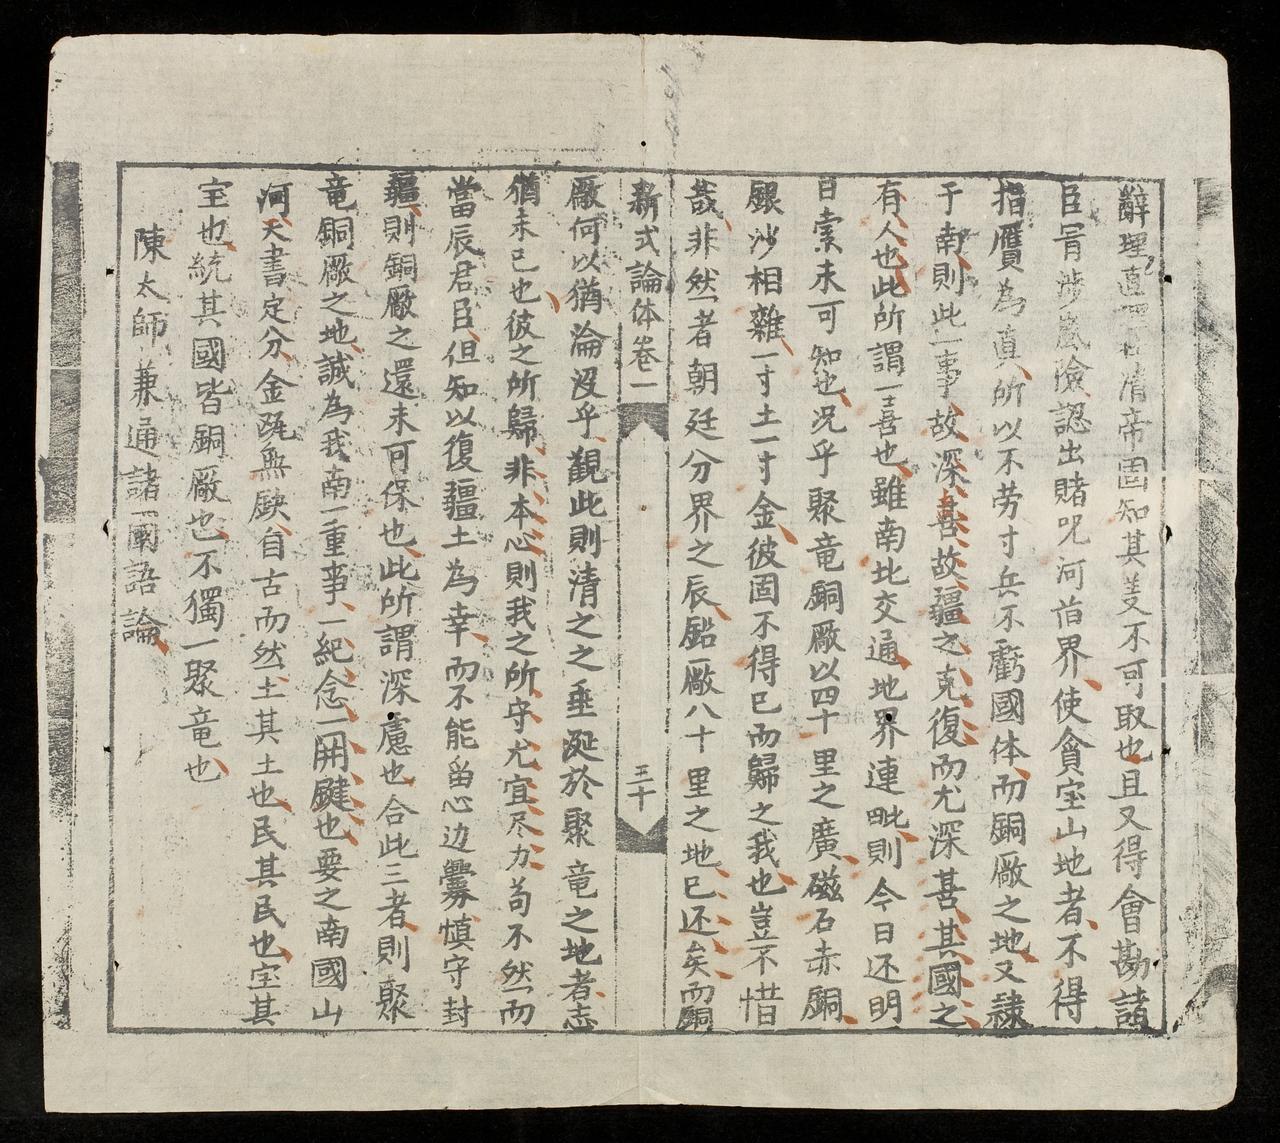 辭理直 清帝固知其差不可取也且又得會勘諸
臣冐涉嵐險認出賭咒河舊界使貪宝山地者不得
指贋為真所以不劳寸兵不虧國体而銅厰之地又隷
于南則此一事故深喜故疆之克復而尤深喜其國之
有人也此所謂一喜也雖南北交通地界連毗則今日还明
日索未可知也况乎聚竜銅厰以四十里之廣磁石赤銅
銀沙相雜一寸土一寸金彼固不得已而歸之我也豈不惜
哉非然者朝廷分界之辰鉛厰八十里之地已还矣而銅
新式論体卷一 三十
厰何以猶淪沒乎觀此則清之之垂涎於聚竜之地者志
猶未已也彼之所歸非本心則我之所守尤宜尽力苟不然而
當辰君臣但知以復疆土為幸而不能留心边釁慎守封
疆則銅厰之還未可保也此所謂深慮也合此三者則聚
竜銅厰之地誠為我南一重事一紀念一開鍵也要之南國山
河天書定分金甌無缺自古而然土其土也民其民也宝其
宝也統其國皆銅厰也不獨一聚竜也
陳太師兼通諸國語論